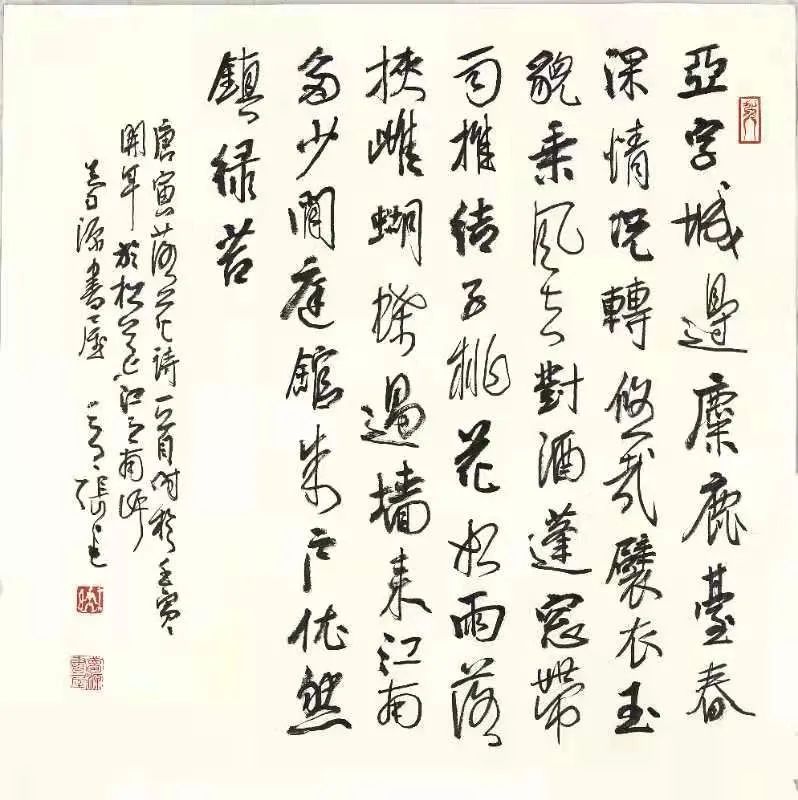 亞字城邊麋鹿臺春
深情況轉悠哉襞衣玉
貌乘風去對酒蓬窓帶
月推結子桃花如雨落
挾雌蝴蝶過墻來江南
多少閒庭館朱戶依然
鎮緑苔
唐寅落花詩一首時於壬寅
開年於松花江之南岸
善源書屋 張